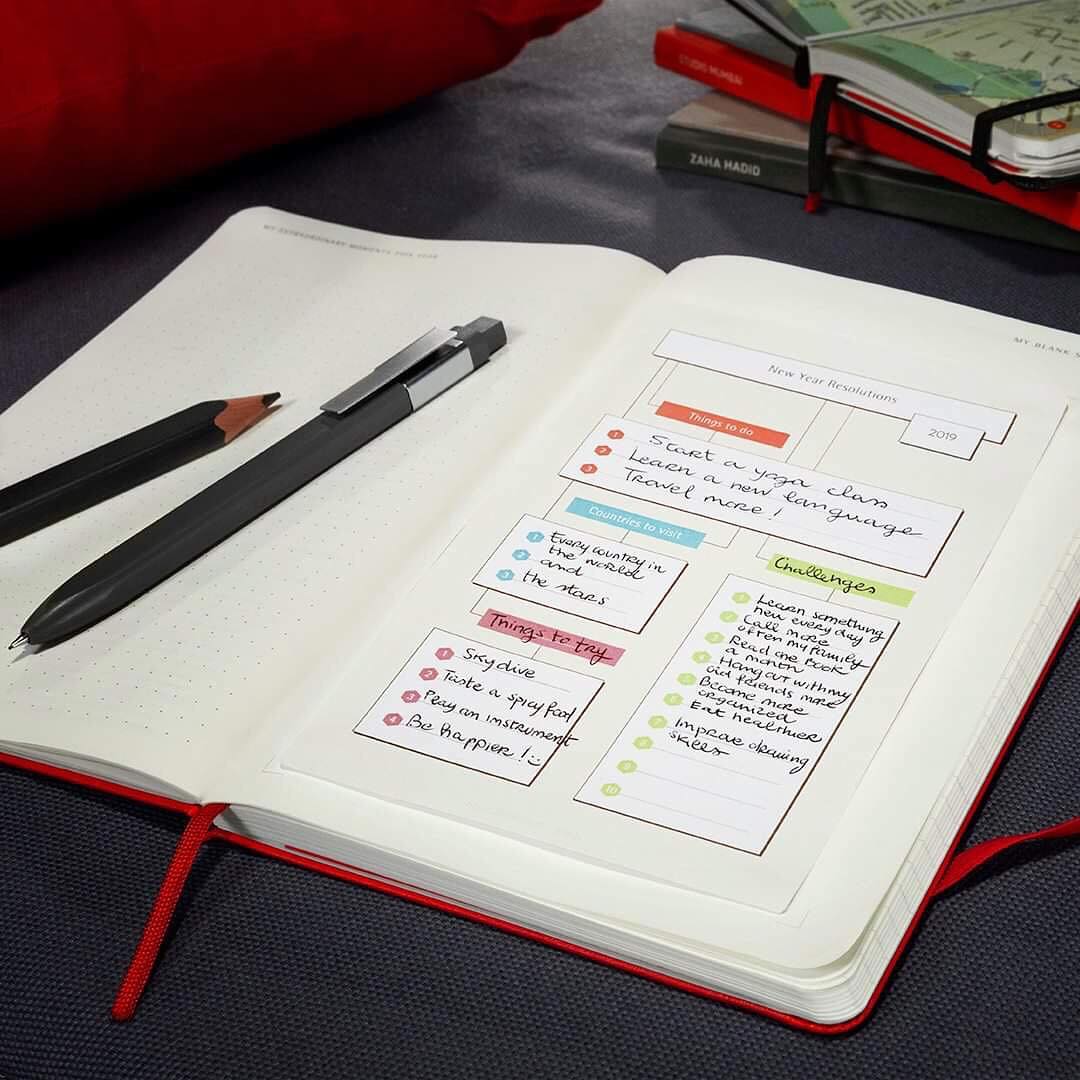 STUDIO MUMBAI
ZAHA HADID
MY EXTRAORDINARY MOMENTS THIS YEAR
MY BLANK
New Year Resolutions
2019
Things to do
1 Start a yoga class
2 Learn a new language
3 Travel more!
Countries to visit
1 Every country in
2 the world
and
3 the stars
Things to try
1 Sky dive
2 Taste a spicy food
3 Play an instrument
4 Be happier! :)
Challenges
1 Learn something
new every day
2 Call more
often my family
3 Read one book
a month
4 Hang out with my
old friends more
5 Become more
organized
6 Eat healthier
7 Improve drawing
skills
8
9
10